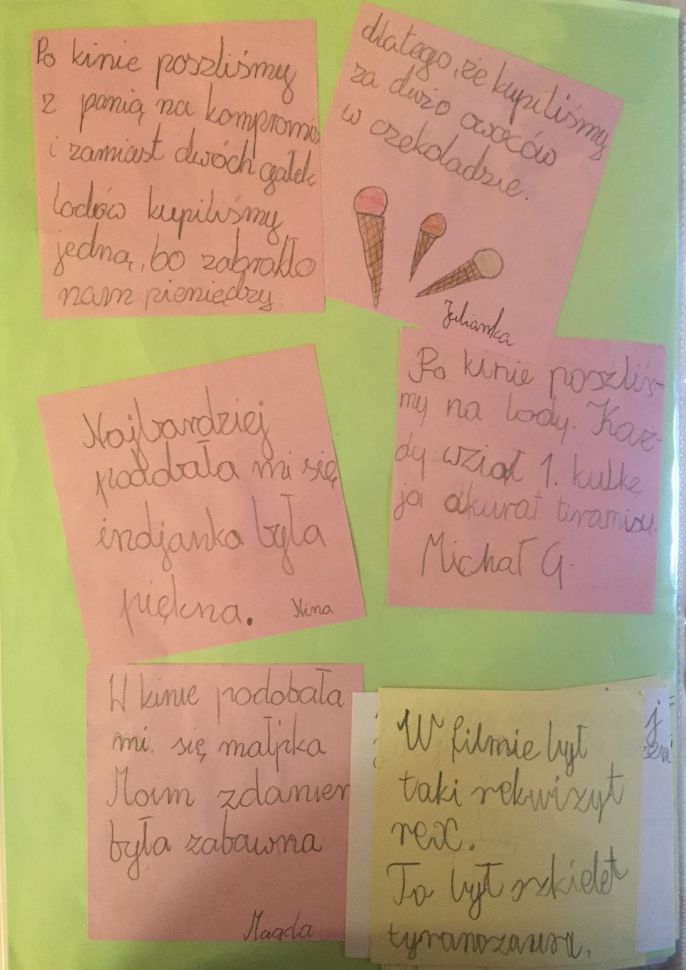 Po kinie poszliśmy
z panią na kompromis
i zamiast dwóch gałek
lodów kupiliśmy
jedną, bo zabrakło
nam pieniędzy
dlatego, że kupiliśmy
za dużo owoców
w czekoladzie.
Julianka
Po kinie poszliś-
my na lody. Każ-
dy wziął 1. kulkę
ja akurat tiramisu.
Michał G.
Najbardziej
podobała mi się
indjanka była
piękna. Nina
W kinie podobała
mi się małpka
Moim zdaniem
była zabawna
Magda
W filmie był
taki rekwizyt
rex.
To był szkielet
tyranozaura.